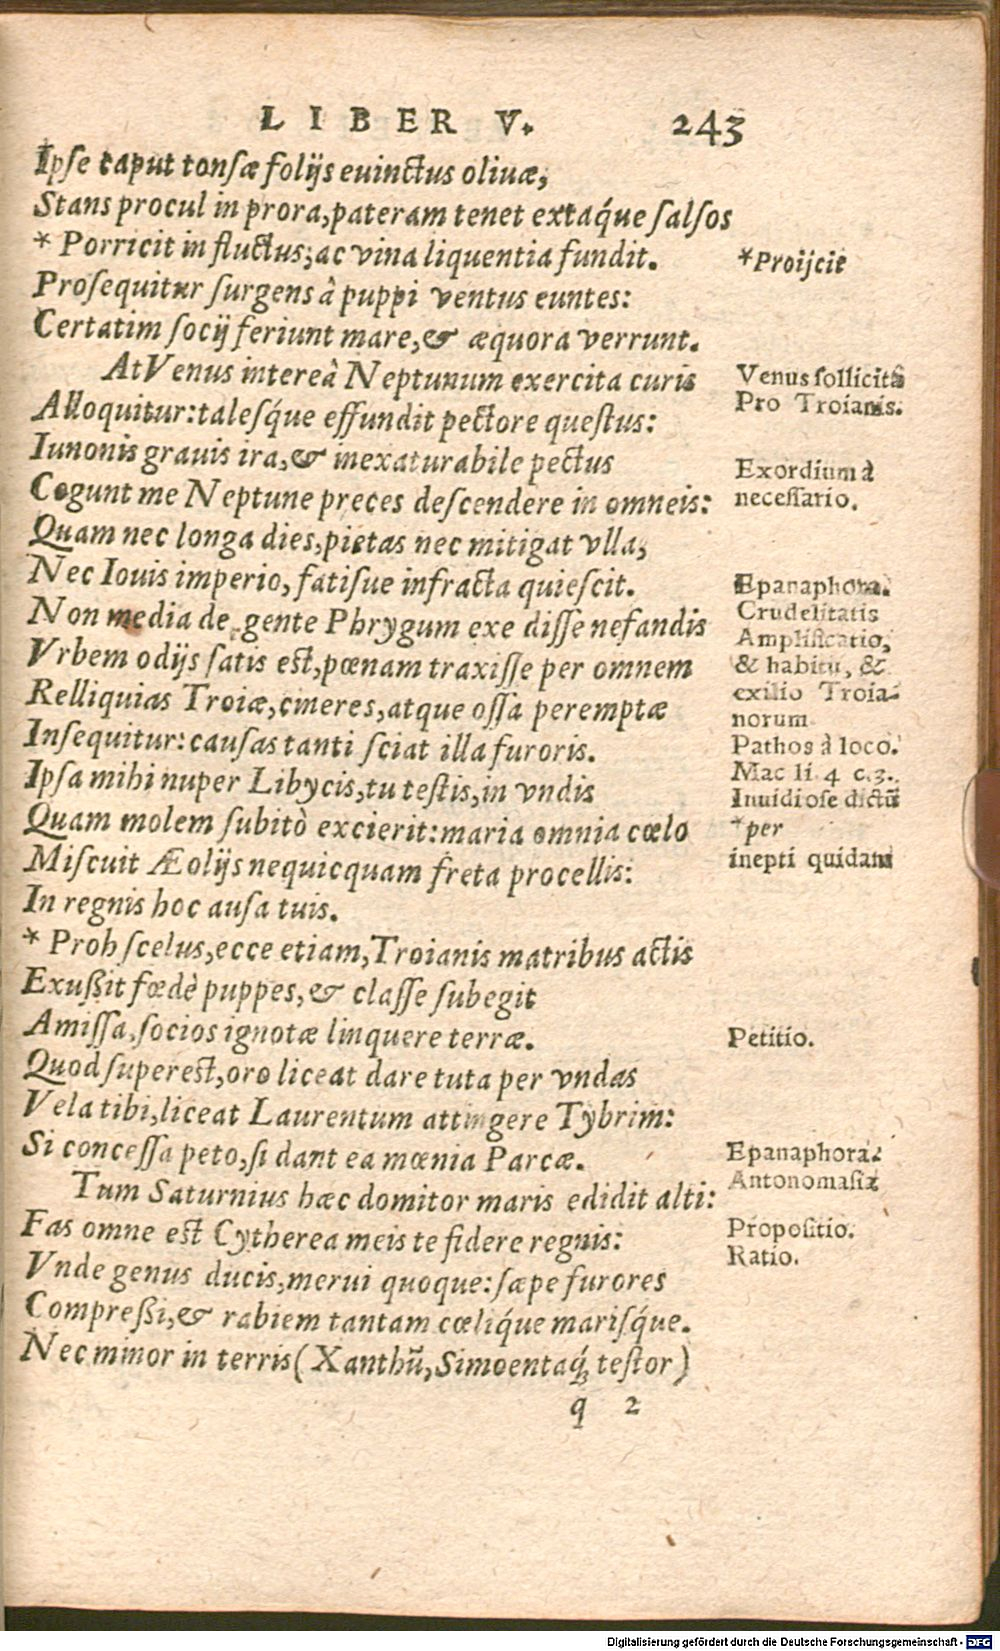 LIBER V. 243
Ipse caput tonsæ folijs euinctus oliuæ,
Stans procul in prora, pateram tenet extaq́ue salsos
* Porricit in fluctus; ac vina liquentia fundit.
*Proijcit
Prosequitur surgens à puppi ventus euntes:
Certatim socij feriunt mare, & æquora verrunt.
At Venus intereà Neptunum exercita curis
Venus sollicita
Alloquitur: talesq́ue effundit pectore questus:
Pro Troianis.
Iunonis grauis ira, & inexaturabile pectus
Exordium à
Cogunt me Neptune preces descendere in omneis:
necessario.
Quam nec longa dies, pietas nec mitigat vlla,
Nec Iouis imperio, fatisue infracta quiescit.
Epanaphora.
Non media de gente Phrygum exe disse nefandis
Crudelitatis
Amplificatio,
Vrbem odijs satis est, pœnam traxisse per omnem
& habitu, &
Relliquias Troiæ, cineres, atque ossa peremptæ
exilio Troia-
norum
Insequitur: causas tanti sciat illa furoris.
Pathos à loco.
Ipsa mihi nuper Libycis, tu testis, in vndis
Mac li. 4 c.3.
Inuidiose dictũ
Quam molem subitò excierit: maria omnia cœlo
*per
Miscuit Æolijs nequicquam freta procellis:
inepti quidam
In regnis hoc ausa tuis.
* Proh scelus, ecce etiam, Troianis matribus actis
Exussit fœdè puppes, & classe subegit
Amissa, socios ignotæ linquere terræ.
Petitio.
Quod superest, oro liceat dare tuta per vndas
Vela tibi, liceat Laurentum attingere Tybrim:
Si concessa peto, si dant ea mœnia Parcæ.
Epanaphora.
Antonomasia
Tum Saturnius hæc domitor maris edidit alti:
Fas omne est Cytherea meis te fidere regnis:
Propositio.
Vnde genus ducis, merui quoque: sæpe furores
Ratio.
Compressi, & rabiem tantam cœliq́ue marisq́ue.
Nec minor in terris (Xanthũ, Simoentaq́; testor)
q 2
Digitalisierung gefördert durch die Deutsche Forschungsgemeinschaft - DFG